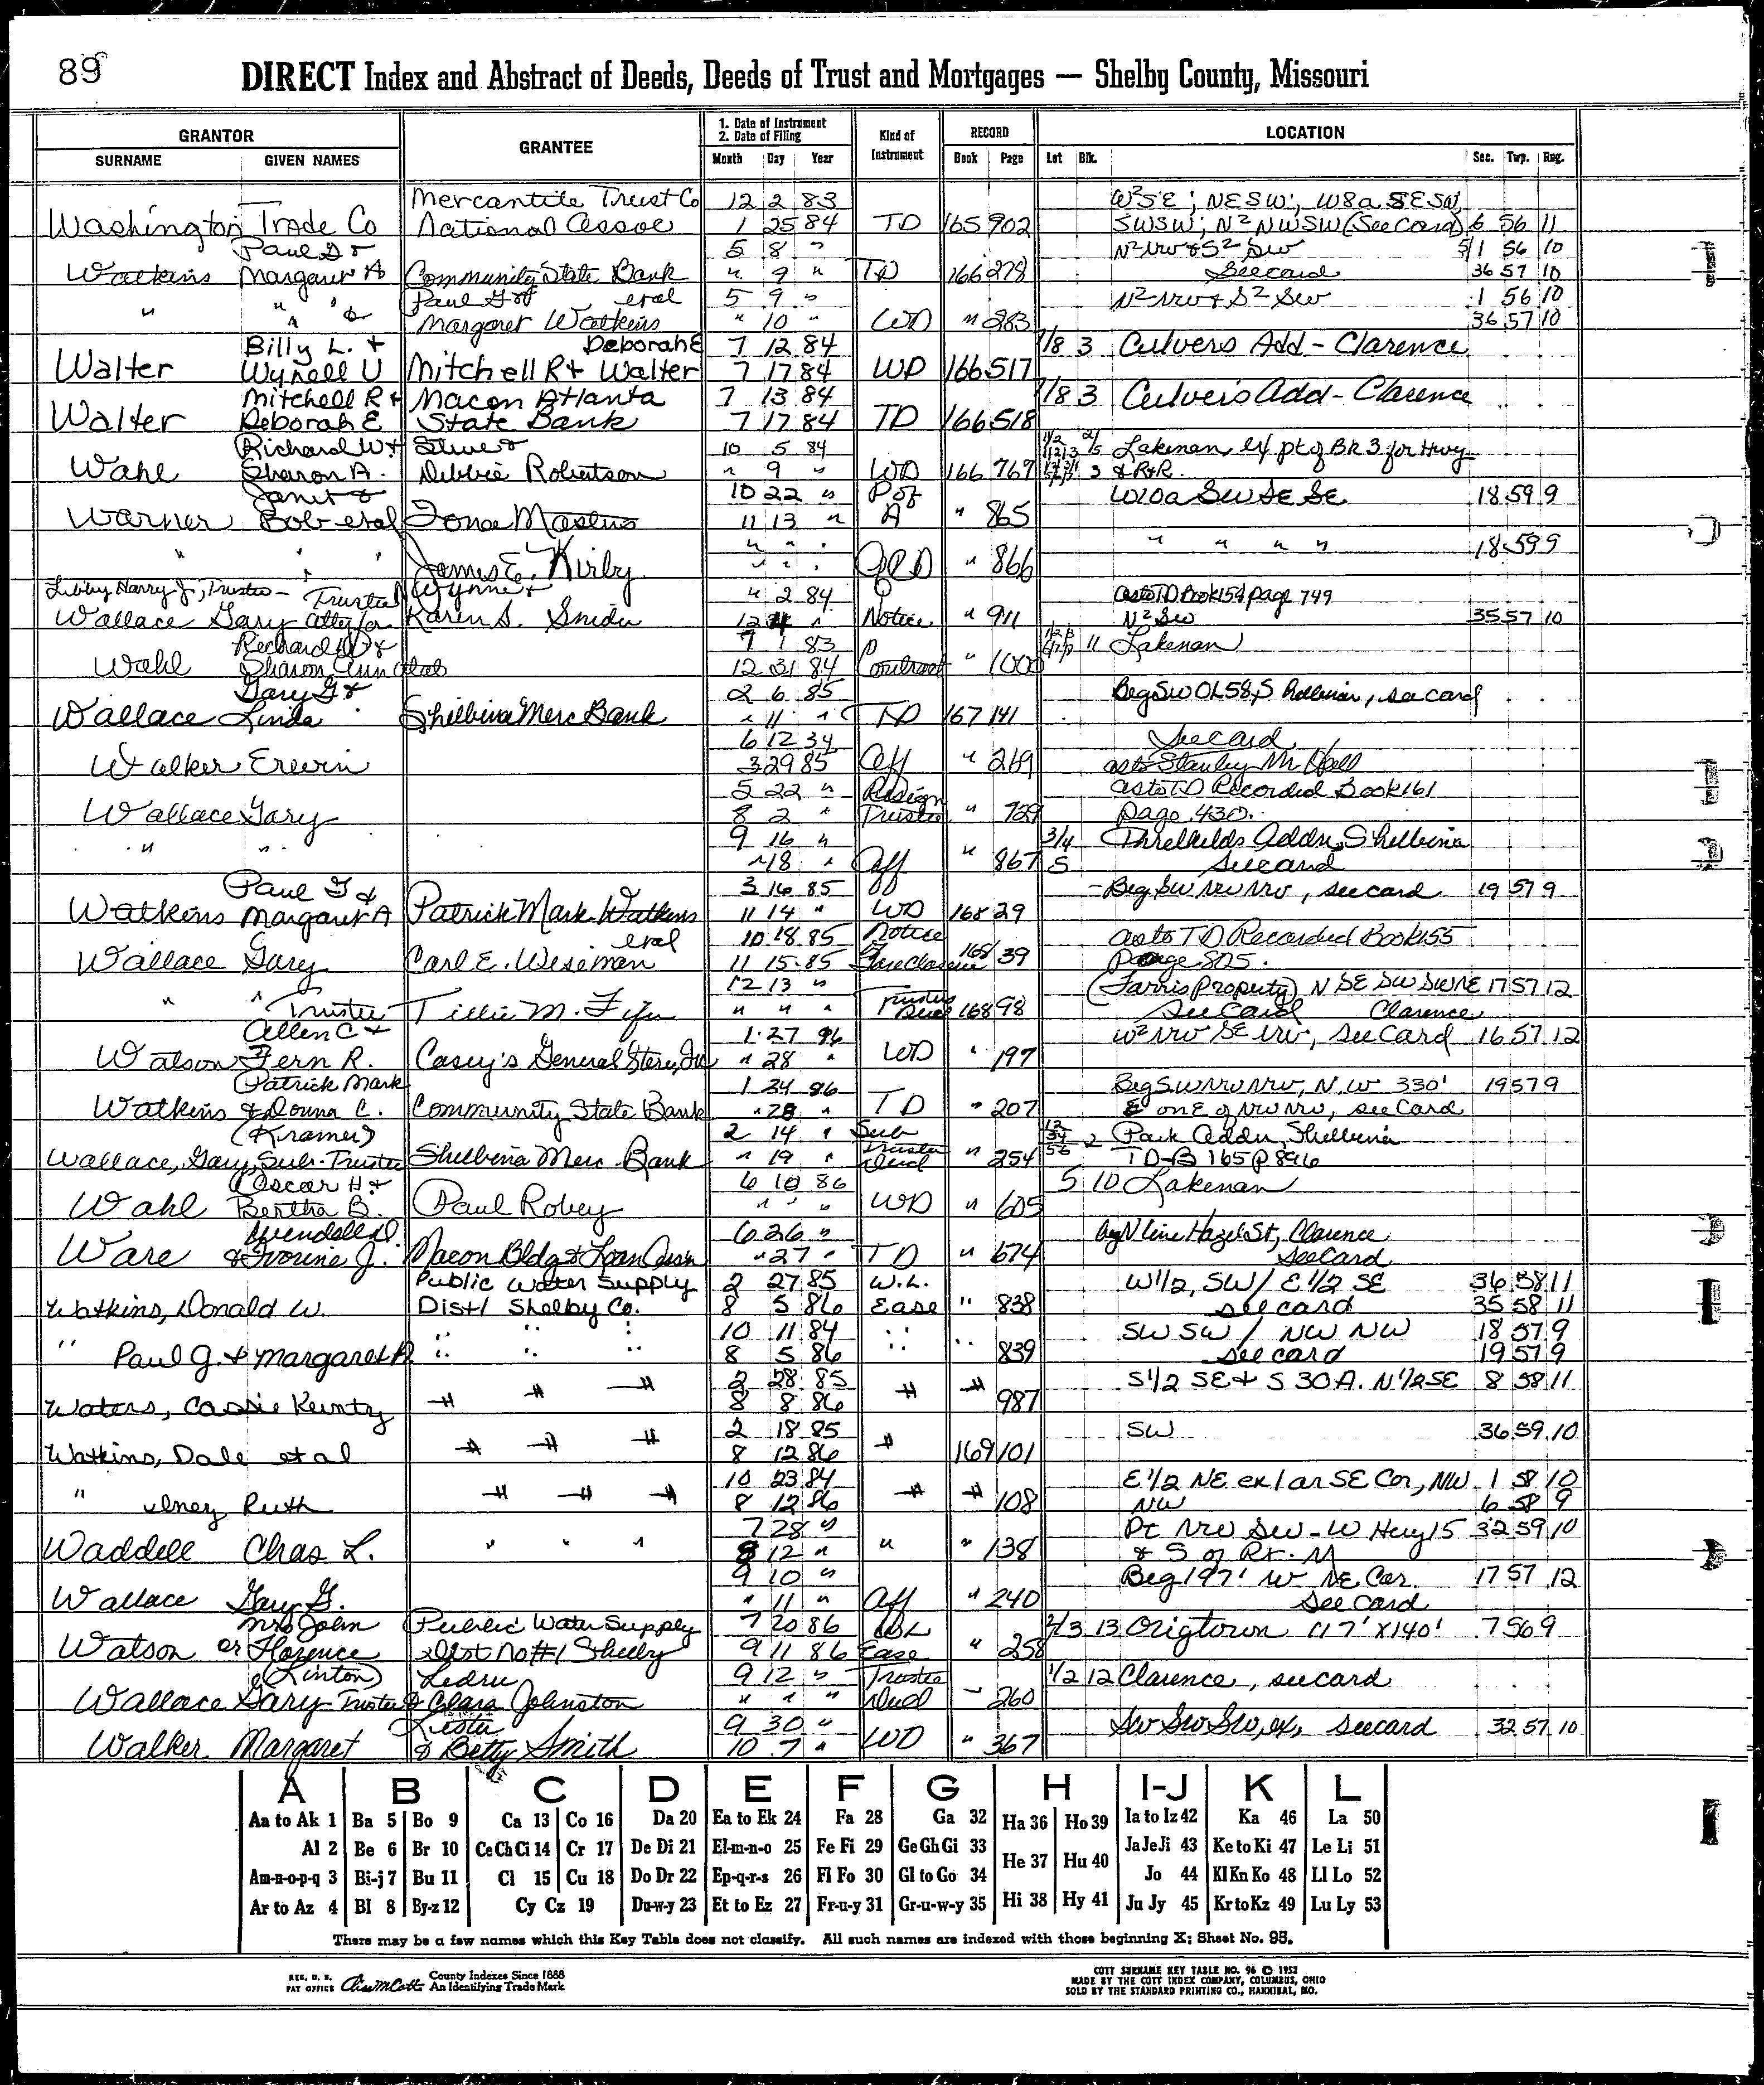 89
DIRECT Index and Abstract of Deeds, Deeds of Trust and Mortgages — Shelby County, Missouri
GRANTOR GRANTEE 1. Date of Instrument 2. Date of Filing Kind of Instrument RECORD LOCATION
SURNAME GIVEN NAMES Month Day Year Book Page Lot Blk. Sec. Twp. Rng.
Mercantile Trust Co 12 2 83 W²SE; NESW; W8a SESW,
Washington Trade Co National Assoc 1 25 84 TD 165 902 SWSW; N² NWSW (See Card) 6 56 11
Paul G & 5 8 " N² NW & S² SW 1 56 10
Watkins Margaret A Community State Bank " 9 " TD 166 278 See card 36 57 10
Paul G & etal 5 9 " N² NW & S² SW 1 56 10
" " " & Margaret Watkins " 10 " WD " 283 36 57 10
Billy L. & Deborah E 7 12 84 7/8 3 Culvers Add - Clarence
Walter Wynell U Mitchell R & Walter 7 17 84 WD 166 517
Mitchell R & Macon Atlanta 7 13 84 7/8 3 Culver's Add - Clarence
Walter Deborah E State Bank 7 17 84 TD 166 518
Richard W & Steve & 10 5 84 Lakenan ex pt of BR 3 for Hwy
Wahl Sharon A. Debbie Robertson " 9 " WD 166 767 & R+R.
Janet & 10 22 " P of W10a SW SE SE 18 59 9
Warner Bob etal 11 13 " A " 865
" " " " " " " " " " 18 59 9
James E. Kirby " " " QCD " 866
Libby Harry J, Trustee - Trustee Wynne & " 2 84 as to TD Book 154 page 749
Wallace Gary atty for Karen S. Snider 12 4 " Notice " 911 N² SW 35 57 10
Richard W & 7 1 83 11 Lakenan
Wahl Sharon Ann etal 12 31 84 Contract " 1000
Gary G & 2 6 85 Beg SW OL 58, S , see card
Wallace Linda Shelbina Merc Bank " 11 " TD 167 141
6 12 34 See card
Walker Erwin 3 29 85 Aff " 219 as to Stanley M Hall
5 22 " Resign as to TD Recorded Book 161
Wallace Gary 8 2 " Trustee " 729 page 430.
" " 9 16 " 3/4 Threlkelds Addn, Shelbina
" 18 " Aff " 867 5 See card
Paul G & 3 16 85 Beg SW NW NW, see card 19 57 9
Watkins Margaret A Patrick Mark Watkins 11 14 " WD 168 29
etal 10 18 85 Notice as to TD Recorded Book 155
Wallace Gary Carl E. Wiseman 11 15 85 Foreclosure 168 39 Page 805.
12 13 " (Farris Property) N SE SW SWNE 17 57 12
" " Trustee Tillie M. Fifer " " " Trustees Deed 168 98 See Card Clarence
Allen C & 1 27 86 W² NW SE NW, see Card 16 57 12
Watson Fern R. Casey's General Store, Inc " 28 " WD " 197
Patrick Mark 1 24 86 Beg SW NW NW, N, W 330' 19 57 9
Watkins & Donna C. Community State Bank " 28 " TD " 207 E on E of NW NW, see Card
(Kramer) 2 14 " Sub 12 34 56 2 Park Addn, Shelbina
Wallace, Gary, Sub-Trustee Shelbina Merc Bank " 19 " Trustee Deed " 254 TD-B 165 P 896
Oscar H & 6 10 86 5 10 Lakenan
Wahl Bertha B. Paul Robey " " " WD " 605
Wendell D. 6 26 " Beg N line Hazel St, Clarence
Ware & Ivorine J. Macon Bldg & Loan Assn " 27 " TD " 674 See Card
Public Water Supply 2 27 85 W.L. W1/2, SW / E 1/2 SE 36 58 11
Watkins, Donald W. Dist 1 Shelby Co. 8 5 86 Ease " 838 see card 35 58 11
" " " 10 11 84 " SW SW / NW NW 18 57 9
" Paul G. & Margaret A " " " 8 5 86 " 839 see card 19 57 9
2 28 85 S 1/2 SE & S 30 A. N 1/2 SE 8 58 11
Waters, Cassie Keinty " " " 8 8 86 " " 987
2 18 85 SW 36 59 10
Watkins, Dale et al " " " 8 12 86 " 169 101
10 23 84 E 1/2 NE ex 1 ar SE Cor, NW 1 58 10
" Ruth " " " 8 12 86 " " 108 NW 6 58 9
7 28 " Pt NW SW - W Hwy 15 32 59 10
Waddell Chas L. " " " 8 12 " " " 138 & S of Rt. M
9 10 " Beg 197' W NE Cor. 17 57 12
Wallace Gary G. " 11 " Aff " 240 See Card
Mrs John Public Water Supply 7 20 86 WL 2/3 13 Origtown 117' X 140' 7 56 9
Watson or Florence Dist No #1 Shelby 9 11 86 Ease " 258
(Linton) Ledru 9 12 " Trustee 1/2 12 Clarence, see card
Wallace Gary Trustee & Clara Johnston " " " Deed " 260
9 30 " SW SW SW, ex, see card 32 57 10
Walker Margaret & Betty Smith 10 7 " WD " 367
A B C D E F G H I-J K L
Aa to Ak 1 Ba 5 Bo 9 Ca 13 Co 16 Da 20 Ea to Ek 24 Fa 28 Ga 32 Ha 36 Ho 39 Ia to Iz 42 Ka 46 La 50
Al 2 Be 6 Br 10 Ce Ch Ci 14 Cr 17 De Di 21 El-m-n-o 25 Fe Fi 29 Ge Gh Gi 33 He 37 Hu 40 Ja Je Ji 43 Ke to Ki 47 Le Li 51
Am-n-o-p-q 3 Bi-j 7 Bu 11 Cl 15 Cu 18 Do Dr 22 Ep-q-r-s 26 Fl Fo 30 Gl to Go 34 Jo 44 Kl Kn Ko 48 Ll Lo 52
Ar to Az 4 Bl 8 By-z 12 Cy Cz 19 Du-w-y 23 Et to Ez 27 Fr-u-y 31 Gr-u-w-y 35 Hi 38 Hy 41 Ju Jy 45 Kr to Kz 49 Lu Ly 53
There may be a few names which this Key Table does not classify. All such names are indexed with those beginning X; Sheet No. 95.
REG. U. S. PAT OFFICE County Indexes Since 1888 An Identifying Trade Mark
COTT SURNAME KEY TABLE NO. 96 © 1952
MADE BY THE COTT INDEX COMPANY, COLUMBUS, OHIO
SOLD BY THE STANDARD PRINTING CO., HANNIBAL, MO.